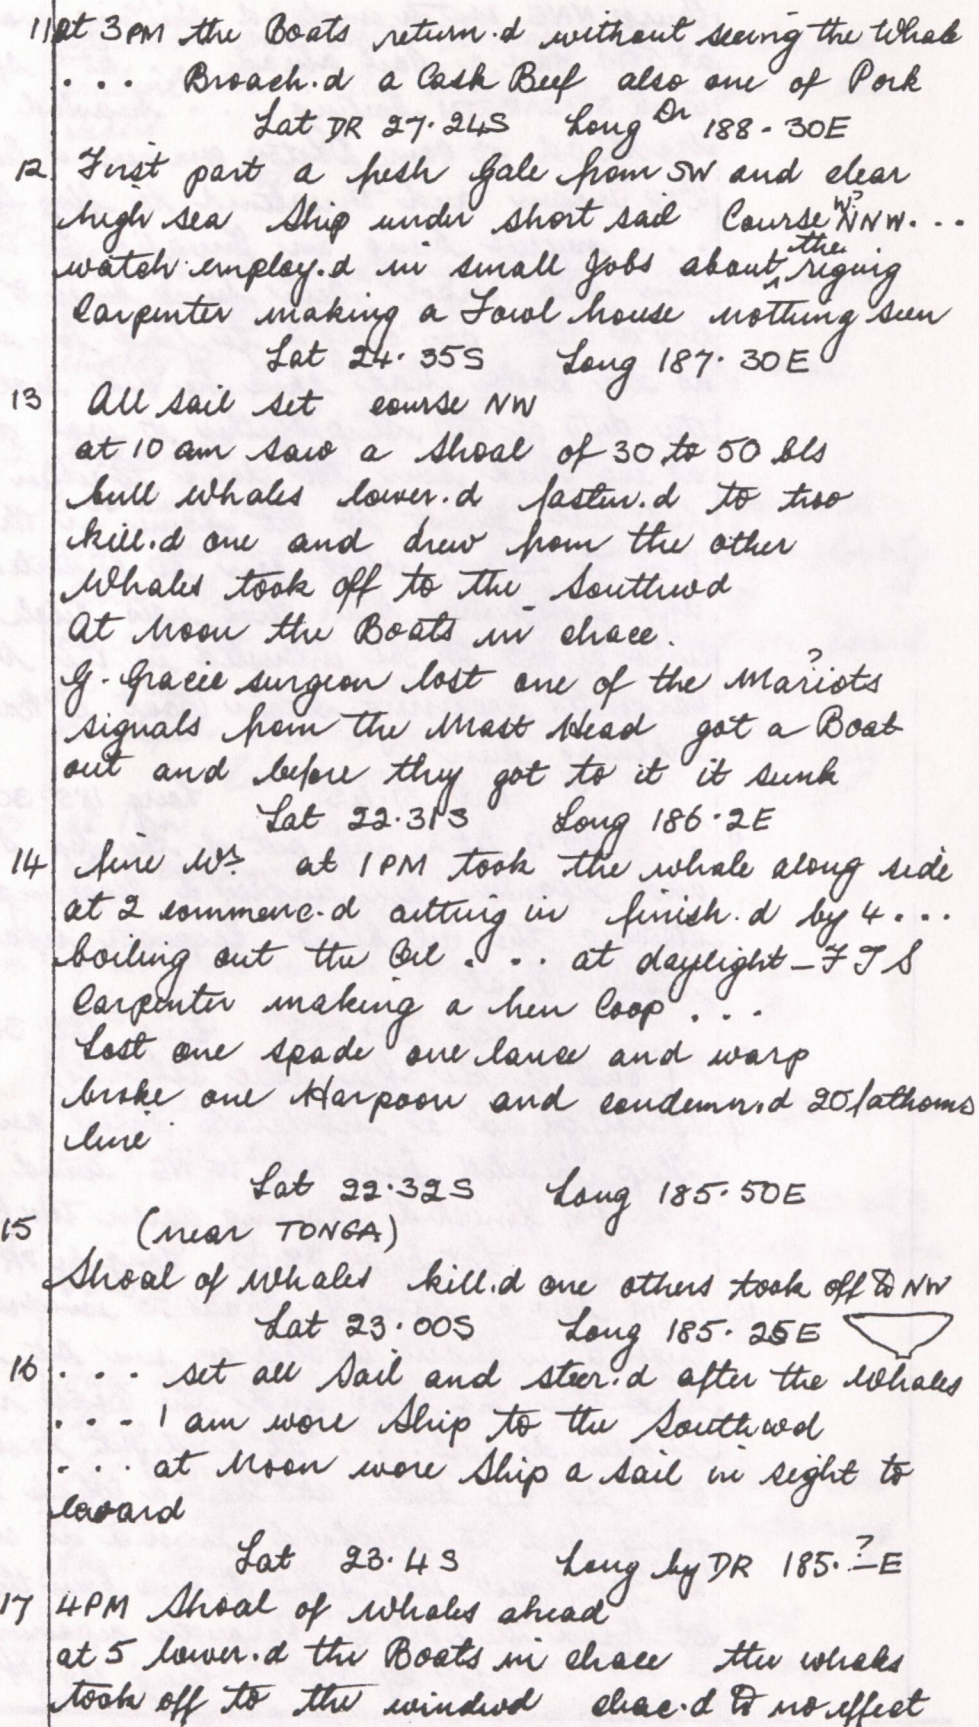 11 at 3 PM the Boats return.d without seeing the Whale
. . . Broach.d a Cask Beef also one of Pork
Lat DR 27.24S Long Dr 188-30E
12 First part a fresh Gale from SW and clear
high sea Ship under short sail Course W? NNW. . .
watch employ.d in small Jobs about the riging
Carpenter making a Fowl house nothing seen
Lat 24.35S Long 187.30E
13 All sail set course NW
at 10 am saw a Shoal of 30 to 50 bls
bull Whales lower.d fasten.d to two
kill.d one and drew from the other
Whales took off to the Southwd
At Noon the Boats in chace.
G. Gracie surgeon lost one of the Mariots ?
signals from the Mast Head got a Boat
out and before they got to it it sunk
Lat 22.31S Long 186.2E
14 fine Wr. at 1 PM took the whale along side
at 2 commenc.d cutting in finish.d by 4 . . .
boiling out the Oil . . . at daylight - F J S
Carpenter making a hen Coop . . .
Lost one spade one lance and warp
broke one Harpoon and condemn.d 20 fathoms
line
Lat 22.32S Long 185.50E
15 (near TONGA)
Shoal of Whales kill.d one others took off to NW
Lat 23.00S Long 185.25E
16 . . . set all Sail and steer.d after the Whales
. . . 1 am wore Ship to the Southwd
. . . at Noon wore Ship a Sail in sight to
leward
Lat 23.4S Long by DR 185.?-E
17 4PM Shoal of Whales ahead
at 5 lower.d the Boats in chace the whales
took off to the windwd chac.d to no effect